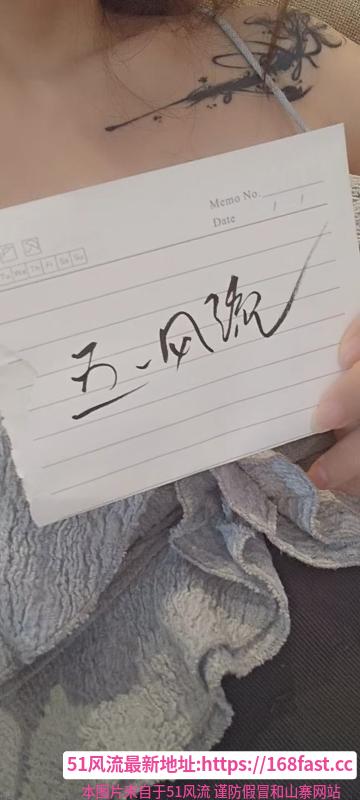 Memo No.
Date / /
Tu We Th Fr Sa Su
五一风流
51风流最新地址:https://168fast.cc
本图片来自于51风流 谨防假冒和山寨网站